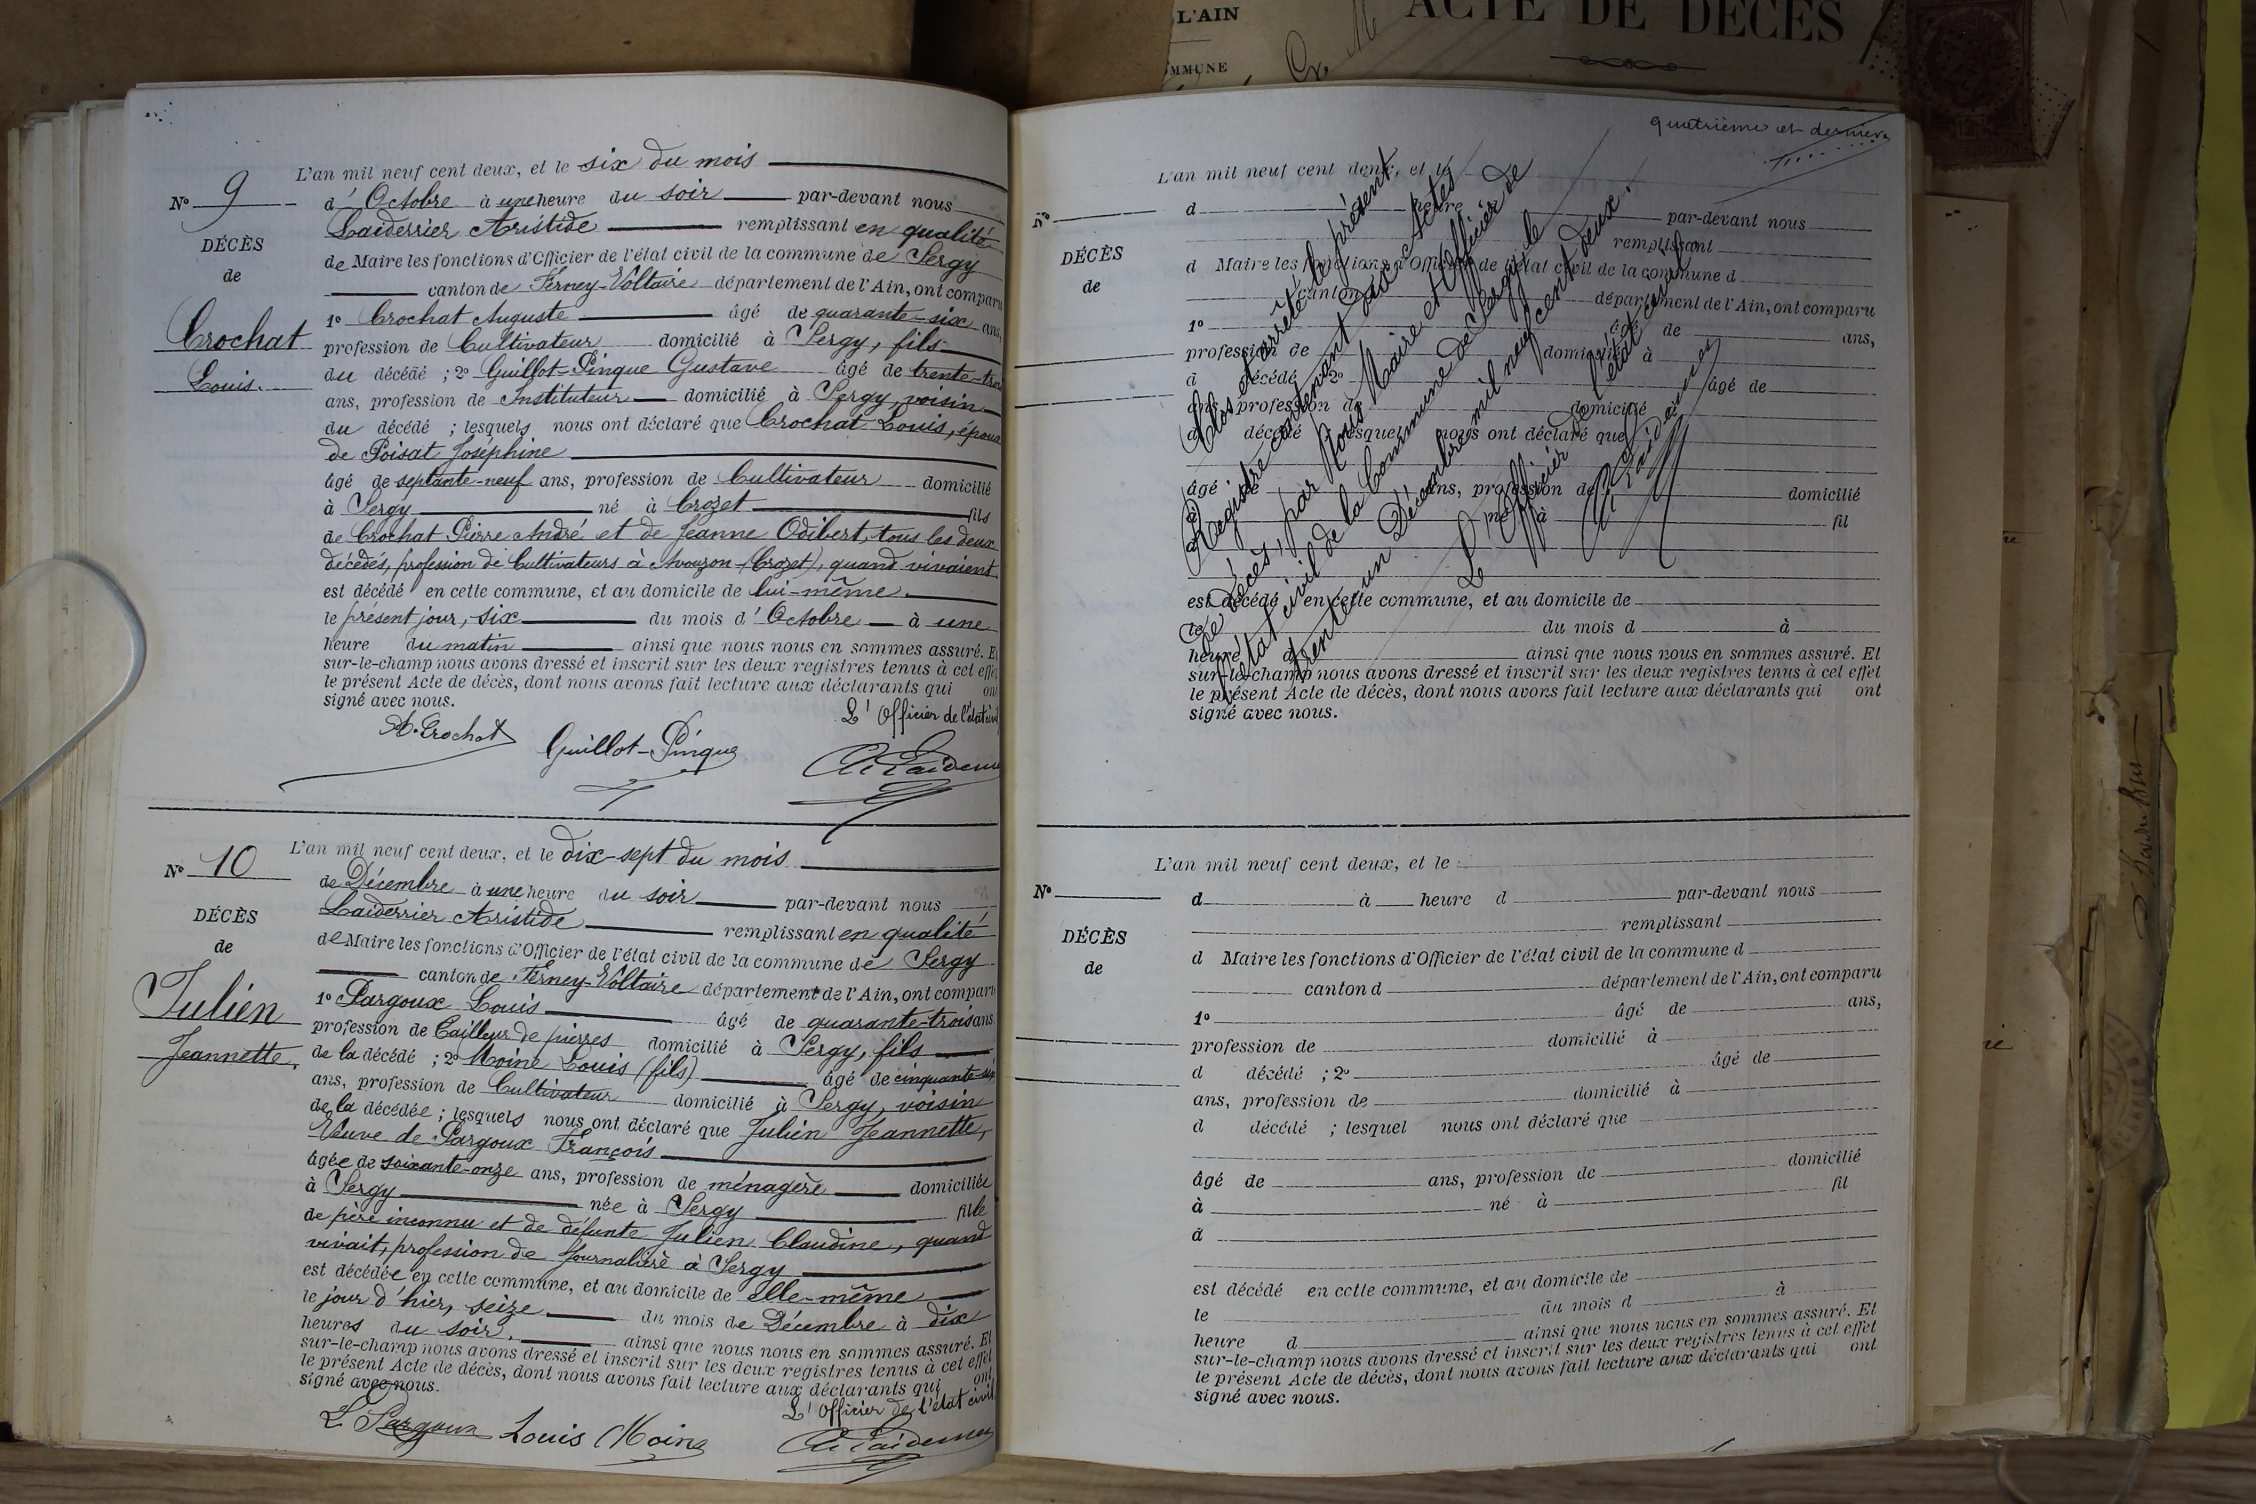 L'AIN
ACTE DE DÉCÈS
L'an mil neuf cent deux, et le six du mois
N° 9
d'Octobre à une heure du soir par-devant nous
DÉCÈS
Laiderrier Aristide remplissant en qualité
de
de Maire les fonctions d'Officier de l'état civil de la commune de Sergy
canton de Ferney-Voltaire département de l'Ain, ont comparu
Crochat
1° Crochat Auguste âgé de quarante-six ans,
profession de Cultivateur domicilié à Sergy, fils
Louis.
du décédé ; 2° Guillot-Pingue Gustave âgé de trente-trois
ans, profession de Instituteur domicilié à Sergy, voisin
du décédé ; lesquels nous ont déclaré que Crochat Louis, époux
de Poisat Joséphine
âgé de septante-neuf ans, profession de Cultivateur domicilié
à Sergy né à Crozet fils
de Crochat Pierre André et de Jeanne Odibert, tous les deux
décédés, profession de Cultivateurs à Avouzon (Crozet), quand vivaient
est décédé en cette commune, et au domicile de lui-même.
le présent jour, six du mois d'Octobre à une
heure du matin ainsi que nous nous en sommes assuré. Et
sur-le-champ nous avons dressé et inscrit sur les deux registres tenus à cet effet
le présent Acte de décès, dont nous avons fait lecture aux déclarants qui ont
signé avec nous.
L'Officier de l'état civil
A. Crochat Guillot-Pingue
L'an mil neuf cent deux, et le dix-sept du mois
N° 10
de Décembre à une heure du soir par-devant nous
DÉCÈS
Laiderrier Aristide remplissant en qualité
de
de Maire les fonctions d'Officier de l'état civil de la commune de Sergy
canton de Ferney-Voltaire département de l'Ain, ont comparu
Julien
1° Pargoux Louis âgé de quarante-trois ans
profession de Tailleur de pierres domicilié à Sergy, fils
Jeannette.
de la décédé ; 2° Moine Louis (fils) âgé de cinquante-six
ans, profession de Cultivateur domicilié à Sergy, voisin
de la décédée ; lesquels nous ont déclaré que Julien Jeannette,
Veuve de Pargoux François
âgée de soixante-onze ans, profession de ménagère domiciliée
à Sergy née à Sergy fille
de père inconnu et de défunte Julien Claudine, quand
vivait, profession de Journalière à Sergy
est décédée en cette commune, et au domicile de elle-même
le jour d'hier, seize du mois de Décembre à dix
heures du soir. ainsi que nous nous en sommes assuré. Et
sur-le-champ nous avons dressé et inscrit sur les deux registres tenus à cet effet
le présent Acte de décès, dont nous avons fait lecture aux déclarants qui ont
signé avec nous.
L'Officier de l'état civil
L Pargoux Louis Moine
quatrième et dernière
L'an mil neuf cent deux, et le
N°
d heure par-devant nous
DÉCÈS
remplissant
de
d Maire les fonctions d'Officier de l'état civil de la commune d
canton département de l'Ain, ont comparu
1° âgé de ans,
profession de domicilié à
d décédé 2° âgé de
ans, profession de domicilié
d décédé lesquel nous ont déclaré que
âgé de ans, profession de domicilié
à né à fil
d
est décédé en cette commune, et au domicile de
le du mois d à
heure d ainsi que nous nous en sommes assuré. Et
sur-le-champ nous avons dressé et inscrit sur les deux registres tenus à cet effet
le présent Acte de décès, dont nous avons fait lecture aux déclarants qui ont
signé avec nous.
Clos et arrêté le présent
Registre contenant dix Actes
de Décès, par Nous Maire et Officier de
l'état civil de la Commune de Sergy, le
trente-un Décembre mil neuf cent deux.
L'Officier de l'état civil
L'an mil neuf cent deux, et le
N°
d à heure d par-devant nous
remplissant
DÉCÈS
de
d Maire les fonctions d'Officier de l'état civil de la commune d
canton d département de l'Ain, ont comparu
1° âgé de ans,
profession de domicilié à
d décédé ; 2° âgé de
ans, profession de domicilié à
d décédé ; lesquel nous ont déclaré que
âgé de ans, profession de domicilié
à né à fil
d
est décédé en cette commune, et au domicile de
le du mois d à
heure d ainsi que nous nous en sommes assuré. Et
sur-le-champ nous avons dressé et inscrit sur les deux registres tenus à cet effet
le présent Acte de décès, dont nous avons fait lecture aux déclarants qui ont
signé avec nous.